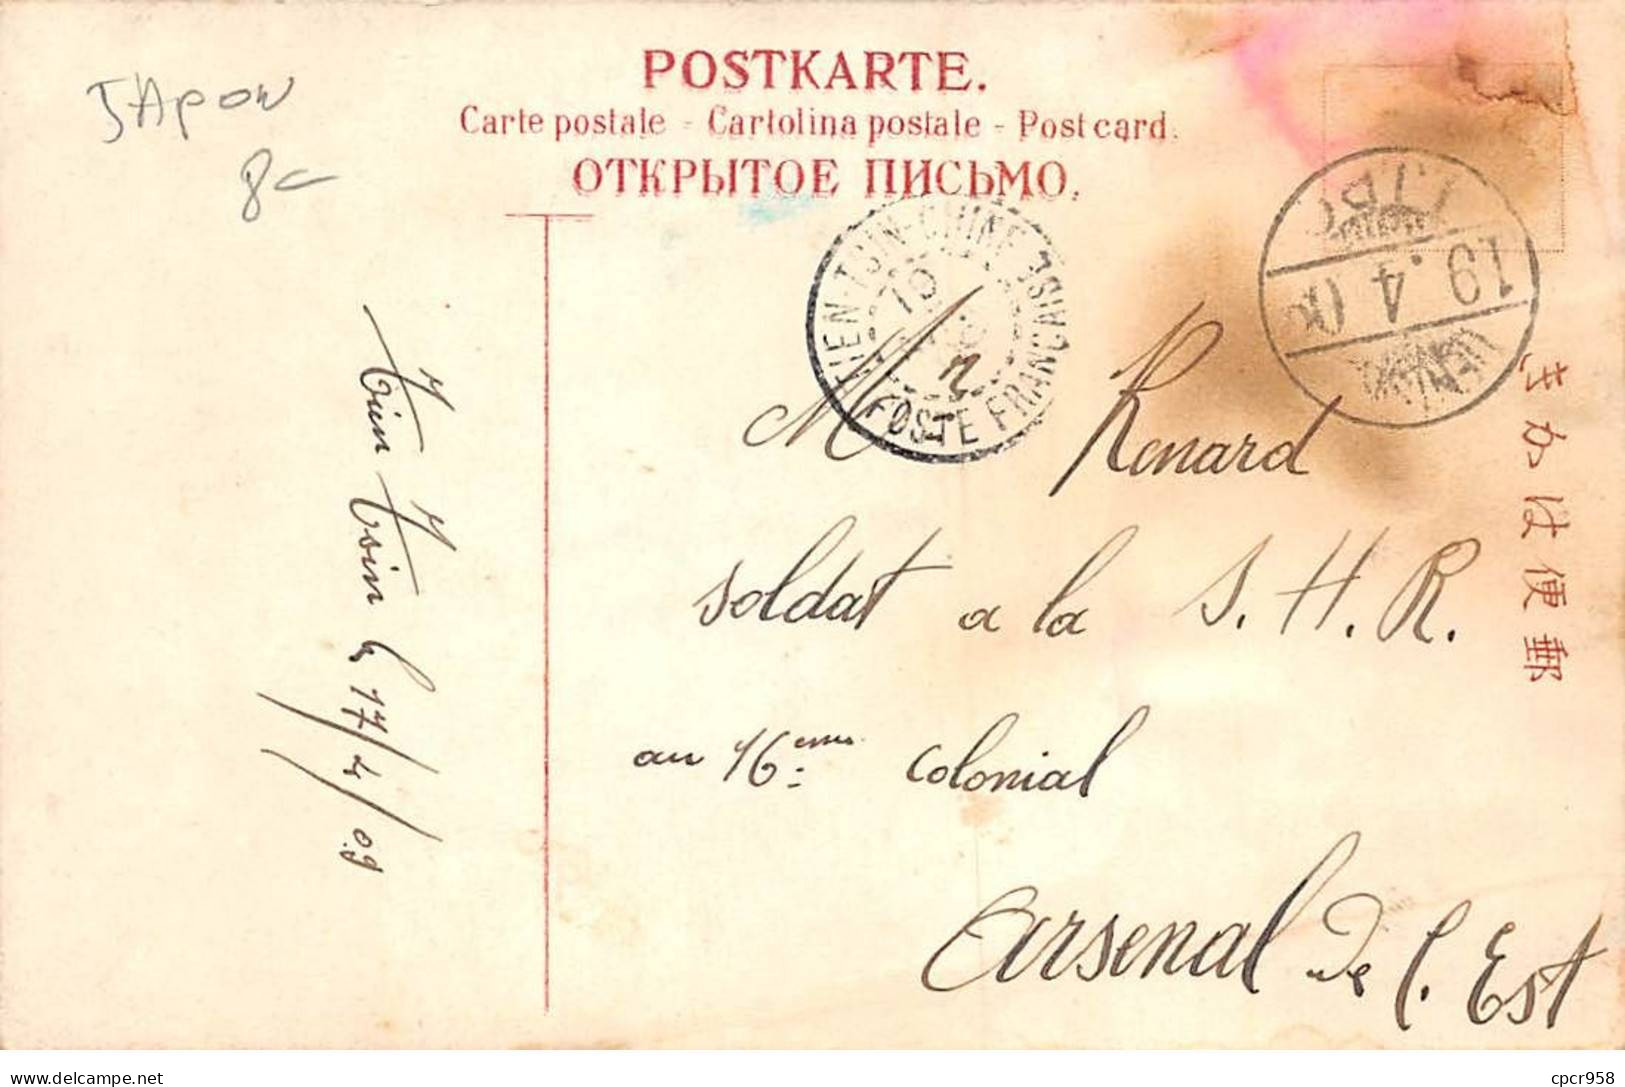 JApon
8c
POSTKARTE.
Carte postale - Cartolina postale - Post card.
ОТКРЫТОЕ ПИСЬМО.
TIEN-TSIN-CHINE
19
POSTE FRANÇAISE
I.J.P.O
19.4.0
きかは便郵
M Renard
soldat a la S. H. R.
au 16ème colonial
Arsenal de l'Est
Tien Tsin le 17/4/09
delcampe.net
cpcr958